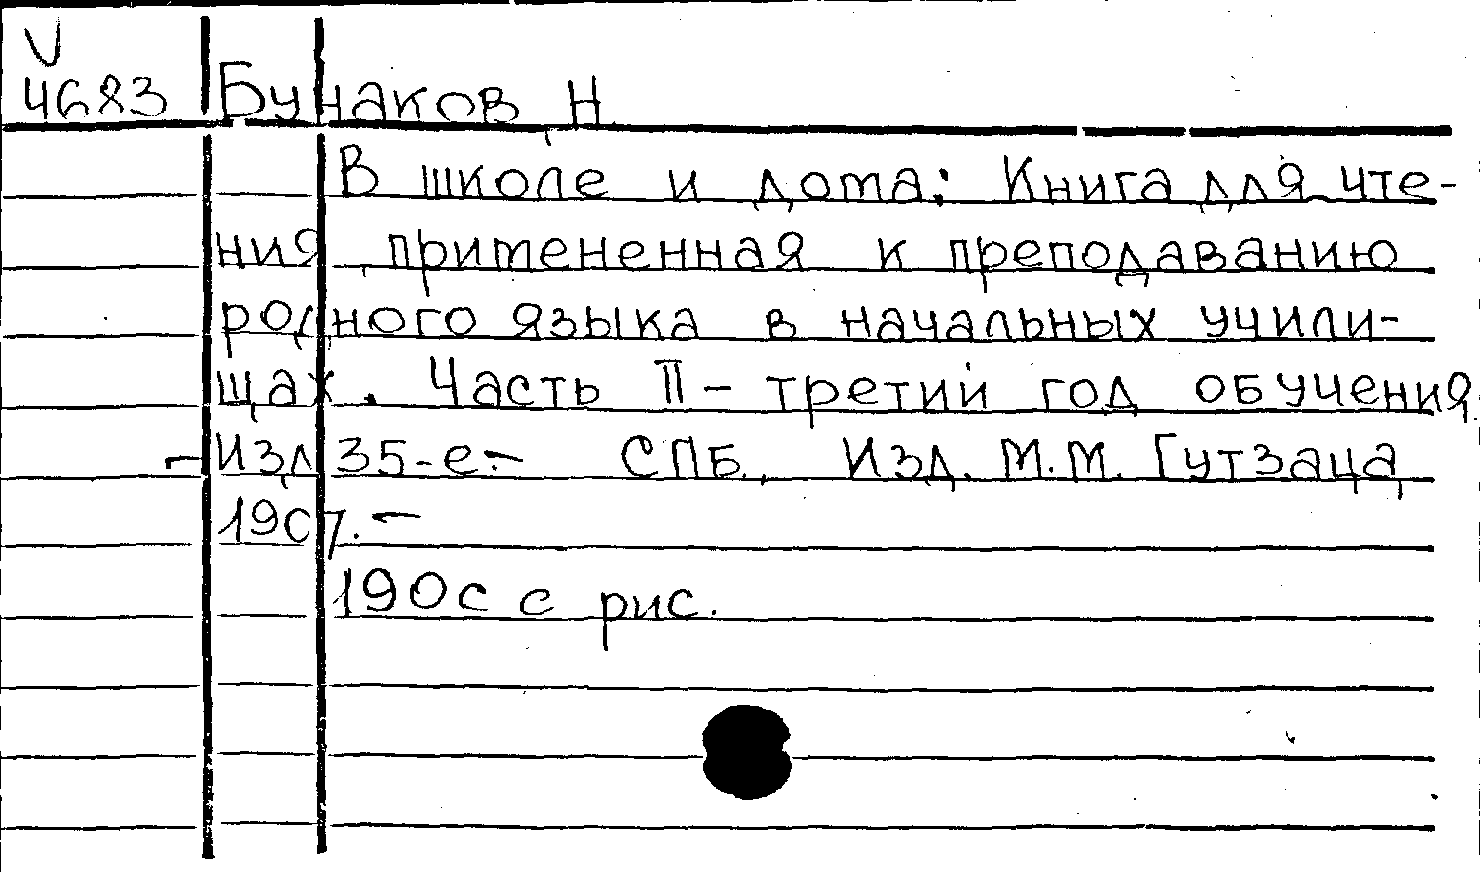 V
4683 Бунаков, Н.
В школе и дома: Книга для чте-
ния, примененная к преподаванию
родного языка в начальных учили-
щах. Часть II - третий год обучения.
- Изд 35-е.- СПБ., Изд. М.М. Гутзаца,
1907.-
190с с рис.